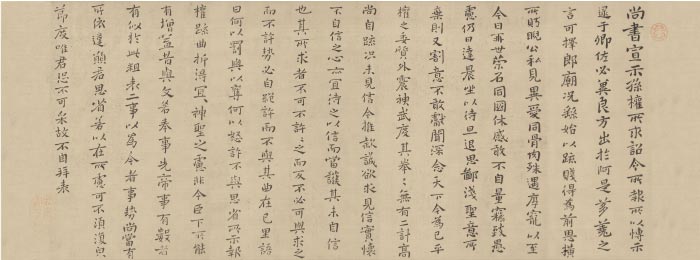 尚書宣示孫權所求詔令所報所以博示
逮于卿佐必冀良方出於阿是芻蕘之
言可擇郎廟況繇始以疏賤得為前思橫
所盱睨公私見異愛同骨肉殊遇厚寵以至
今日再世榮名同國休慼敢不自量竊致愚
慮仍日達晨坐以待旦退思鄙淺聖意所
棄則又割意不敢獻聞深念天下今為已平
權之委質外震神武度其拳〻無有二計高
尚自疏況未見信今推款誠欲求見信實懷
不自信之心亦宜待之以信而當護其未自信
也其所求者不可不許〻之而反不必可與求之
而不許勢必自絕許而不與其曲在己里語
曰何以罰與以奪何以怒許不與思省所示報
權疏曲折得宜〻神聖之慮非今臣下所能
有增益昔與文若奉事先帝事有數者
有似於此粗表二事以為今者事勢尚當有
所依違願君思省若以在所慮可不須復貌
節度唯君恐不可采故不自拜表